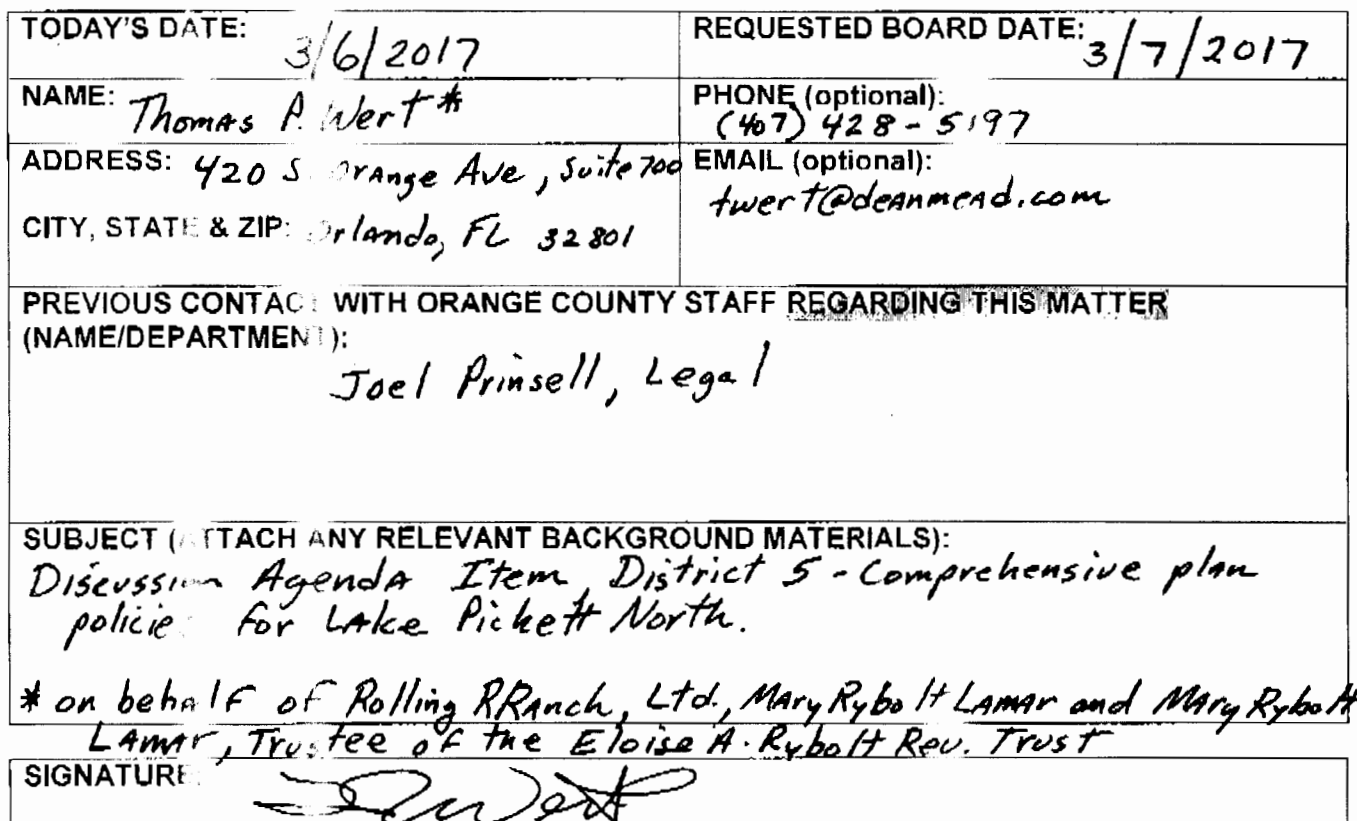 TODAY'S DATE: 3/6/2017 REQUESTED BOARD DATE: 3/7/2017
NAME: Thomas P. Wert* PHONE (optional):
(407) 428-5197
ADDRESS: 420 S. Orange Ave, Suite 700 EMAIL (optional):
twert@deanmead.com
CITY, STATE & ZIP: Orlando, FL 32801
PREVIOUS CONTACT WITH ORANGE COUNTY STAFF REGARDING THIS MATTER
(NAME/DEPARTMENT):
Joel Prinsell, Legal
SUBJECT (ATTACH ANY RELEVANT BACKGROUND MATERIALS):
Discussion Agenda Item District 5 - Comprehensive plan
policies for Lake Pickett North.
* on behalf of Rolling RRanch, Ltd., Mary Rybolt Lamar and Mary Rybolt
Lamar, Trustee of the Eloise A. Rybolt Rev. Trust
SIGNATURE: